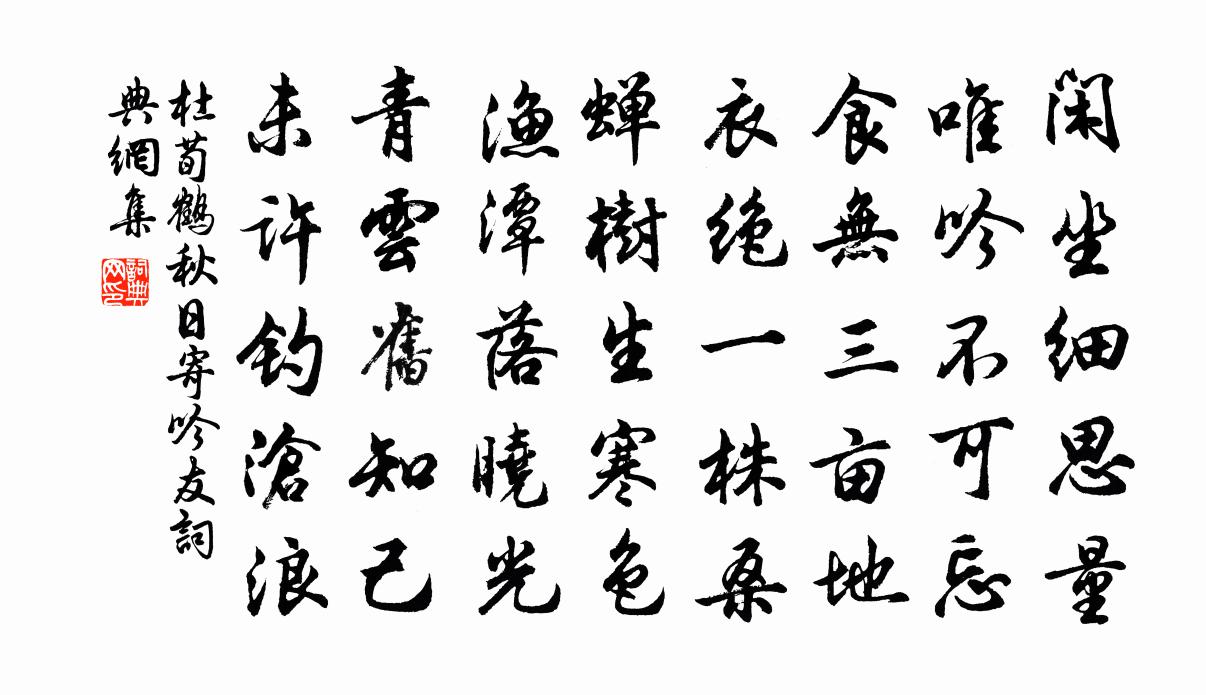 闲坐细思量
唯吟不可忘
食無三亩地
衣绝一株桑
蝉樹生寒色
渔潭落曉光
青雲舊知己
未许钓滄浪
杜荀鶴秋日寄吟友詞
典網集
詞典
网印